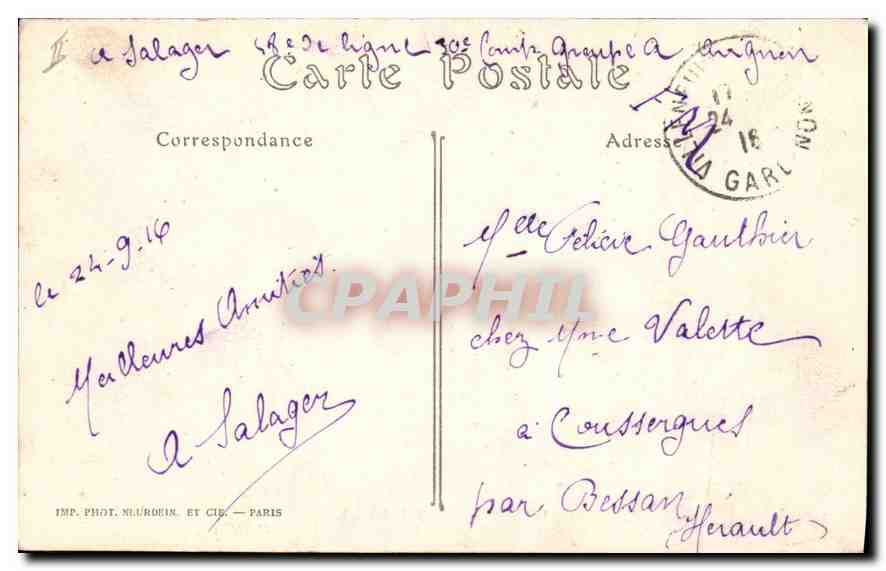 A Salager 58e de ligne 30e Comp Groupe A Avignon
Carte Postale
Correspondance
Adresse
FM
17
24
16
GARE
le 24-9-16
Meilleures Amitiés.
A Salager
Mlle Félicie Gauthier
chez Mme Valette
à Coussergues
par Bessan
Hérault
CPAPHIL
IMP. PHOT. NEURDEIN. ET CIE. — PARIS